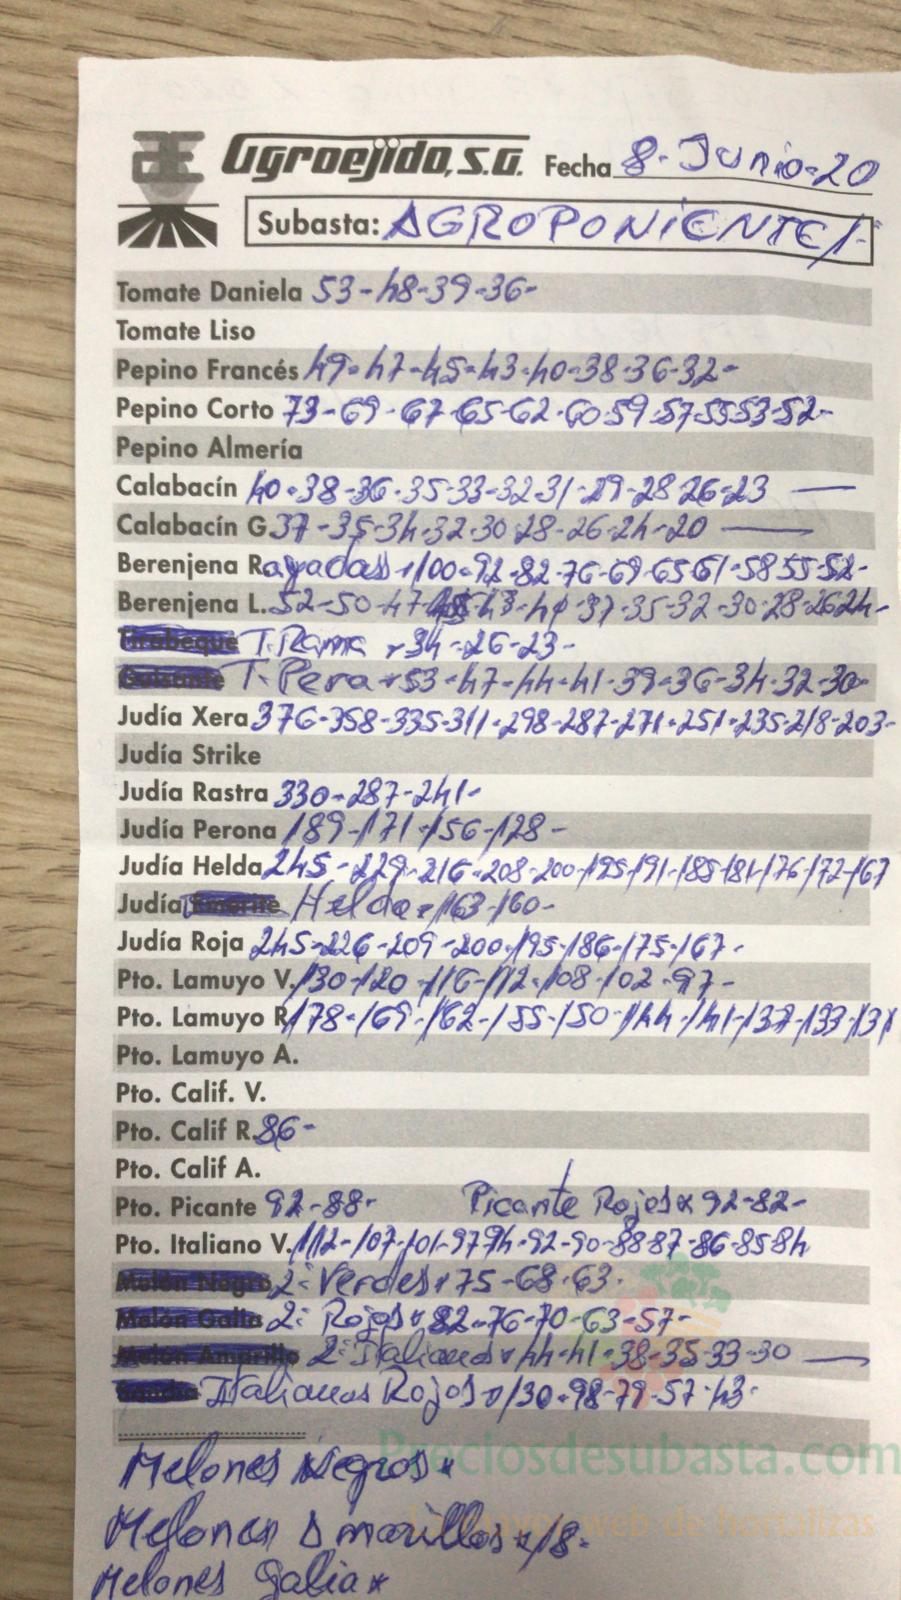 Agroejido, S.A. Fecha 8-Junio-20
Subasta: AGROPONIENTE/-
Tomate Daniela 53-48-39-36-
Tomate Liso
Pepino Francés 49-47-45-43-40-38-36-32-
Pepino Corto 73-69-67-65-62-60-59-57-55-53-52-
Pepino Almería
Calabacín 40-38-36-35-33-32-31-29-28-26-23 —
Calabacín G 37-35-34-32-30-28-26-24-20 —
Berenjena Rayadas 100-92-82-76-69-65-61-58-55-52-
Berenjena L. 52-50-47-45-43-41-37-35-32-30-28-26-24-
T. Rama 34-26-23-
T. Pera 53-47-44-41-39-36-34-32-30-
Judía Xera 376-358-335-311-298-287-271-251-235-218-203-
Judía Strike
Judía Rastra 330-287-241-
Judía Perona 189-171-156-128-
Judía Helda 245-229-216-208-200-195-191-185-181-176-172-167
Judía Helda 163-160-
Judía Roja 245-226-209-200-195-186-175-167-
Pto. Lamuyo V. 130-120-116-112-108-102-97-
Pto. Lamuyo R 178-169-162-155-150-144-141-137-133-131
Pto. Lamuyo A.
Pto. Calif. V.
Pto. Calif R. 86-
Pto. Calif A.
Pto. Picante 92-88- Picante Rojos 92-82-
Pto. Italiano V. 112-107-101-97-94-92-90-88-87-86-85-84
2ª Verdes 75-68-63-
2ª Rojos 82-76-70-63-57-
2ª Italianos 44-41-38-35-33-30 —
Italianos Rojos 130-98-79-57-43-
Preciosdesubasta.com
Melones Negros
Melones Amarillos 18-
web de hortalizas
Melones Galia